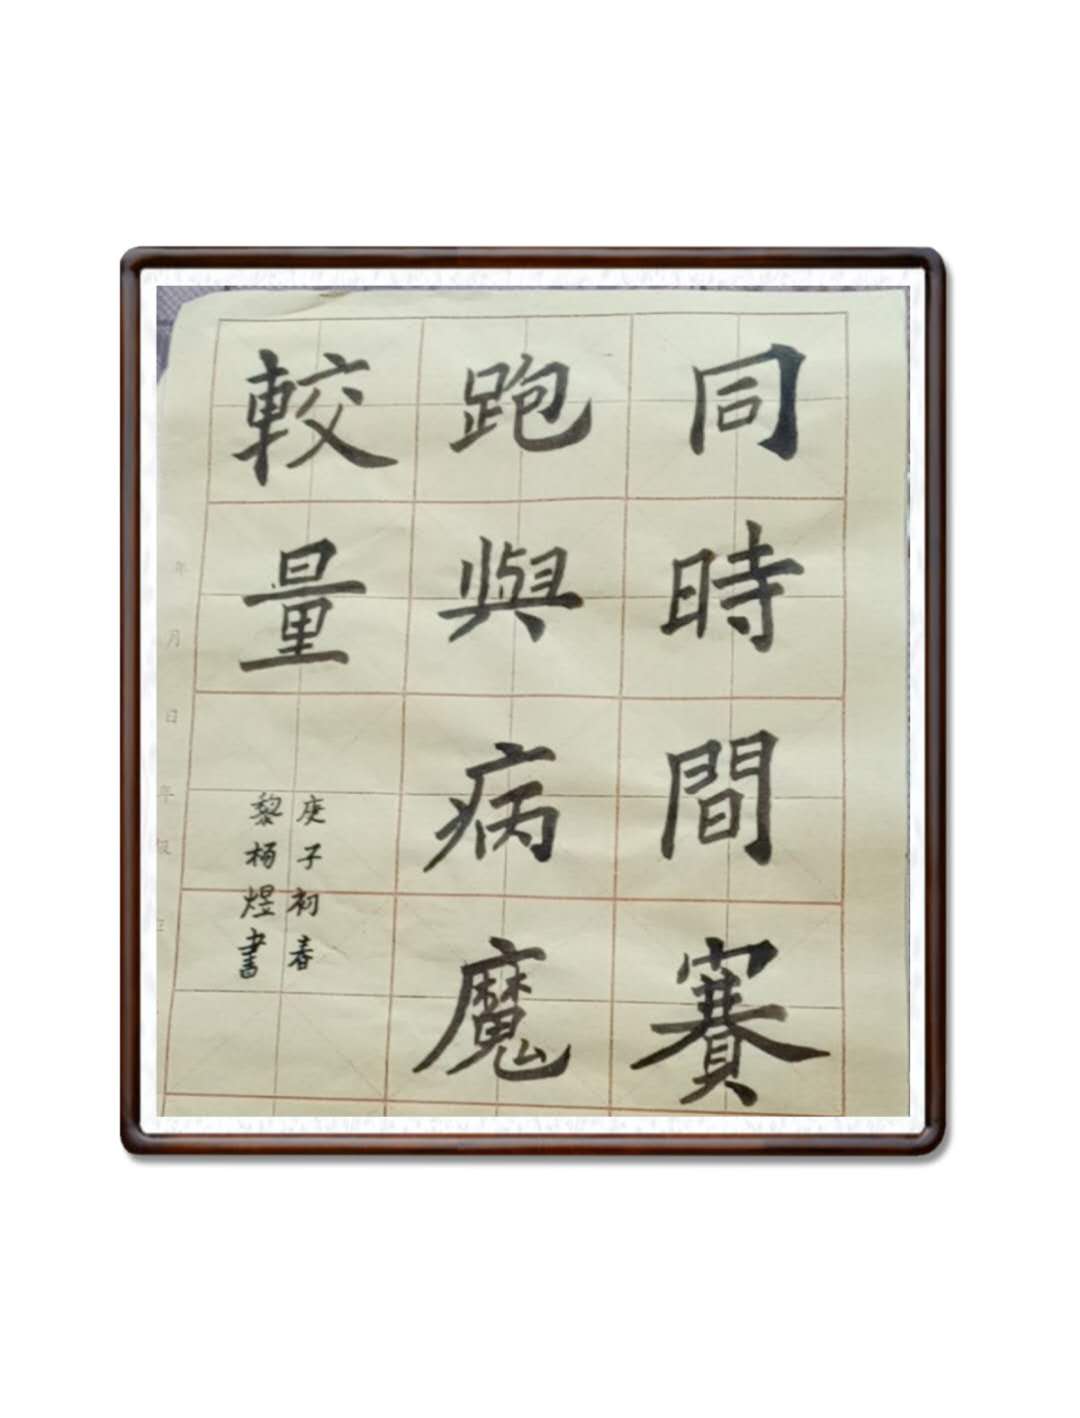 同時間賽
跑與病魔
較量
庚子初春
黎楊煜書
年 月 日
年 级